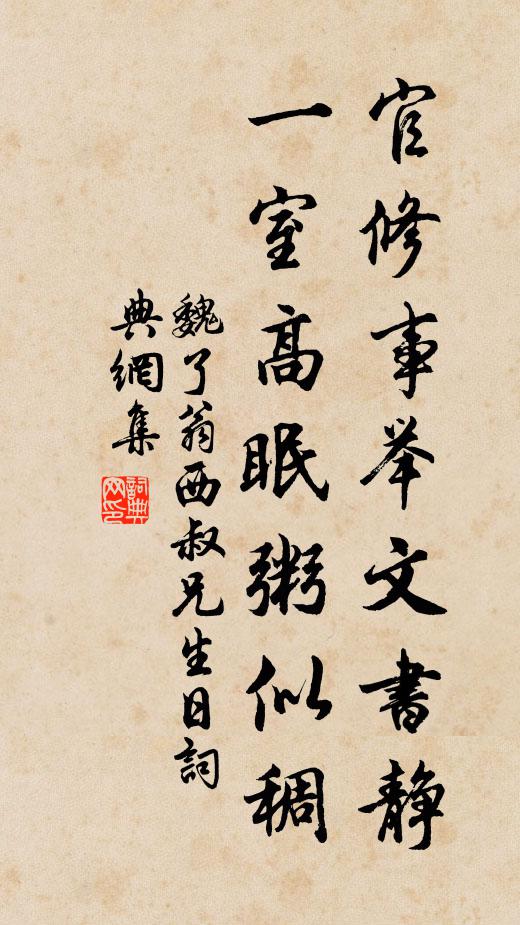 官修事举文書静
一室高眠粥似稠
魏了翁西叔兄生日詞
典網集
詞典網印